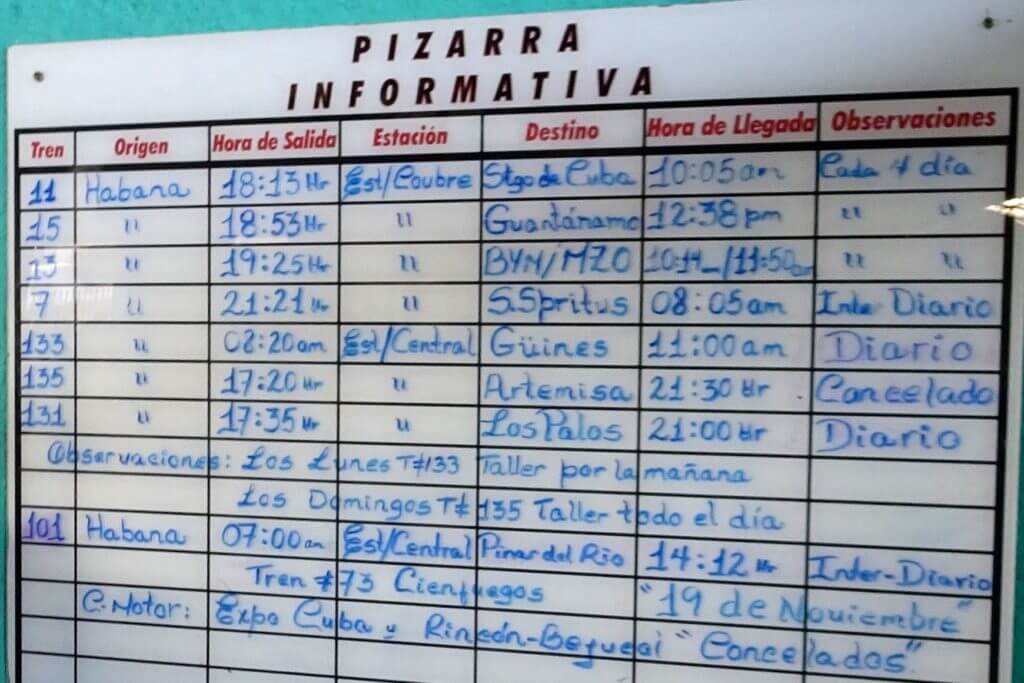 PIZARRA
INFORMATIVA
Tren Origen Hora de Salida Estación Destino Hora de Llegada Observaciones
11 Habana 18:13 Hr Est/Coubre Stgo de Cuba 10:05 am Cada 4 día
15 " 18:53 Hr " Guantánamo 12:38 pm " "
13 " 19:25 Hr " BYM/MZO 10:14 /11:50am " "
7 " 21:21 Hr " S.Spritus 08:05 am Inter Diario
133 " 08:20 am Est/Central Güines 11:00 am Diario
135 " 17:20 Hr " Artemisa 21:30 Hr Cancelado
131 " 17:35 Hr " Los Palos 21:00 Hr Diario
Observaciones: Los Lunes T#133 Taller por la mañana
Los Domingos T# 135 Taller todo el día
101 Habana 07:00 am Est/Central Pinar del Rio 14:12 Hr Inter-Diario
Tren #73 Cienfuegos "19 de Noviembre"
C.Motor: Expo Cuba y Rincón- "Cancelados"